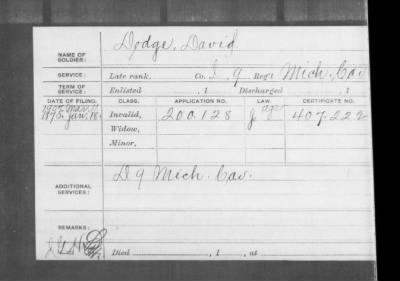 NAME OF SOLDIER: Dodge, David
SERVICE: Late rank, Co. I, 9 Reg't Mich. Cav
TERM OF SERVICE: Enlisted , 1 Discharged , 1
DATE OF FILING. CLASS. APPLICATION NO. LAW. CERTIFICATE NO.
1907 Mar.
1875. Jan. 18. Invalid, 200,128 407.222
Widow,
Minor,
ADDITIONAL SERVICES: D 9 Mich. Cav.
REMARKS:
Died , 1 , at